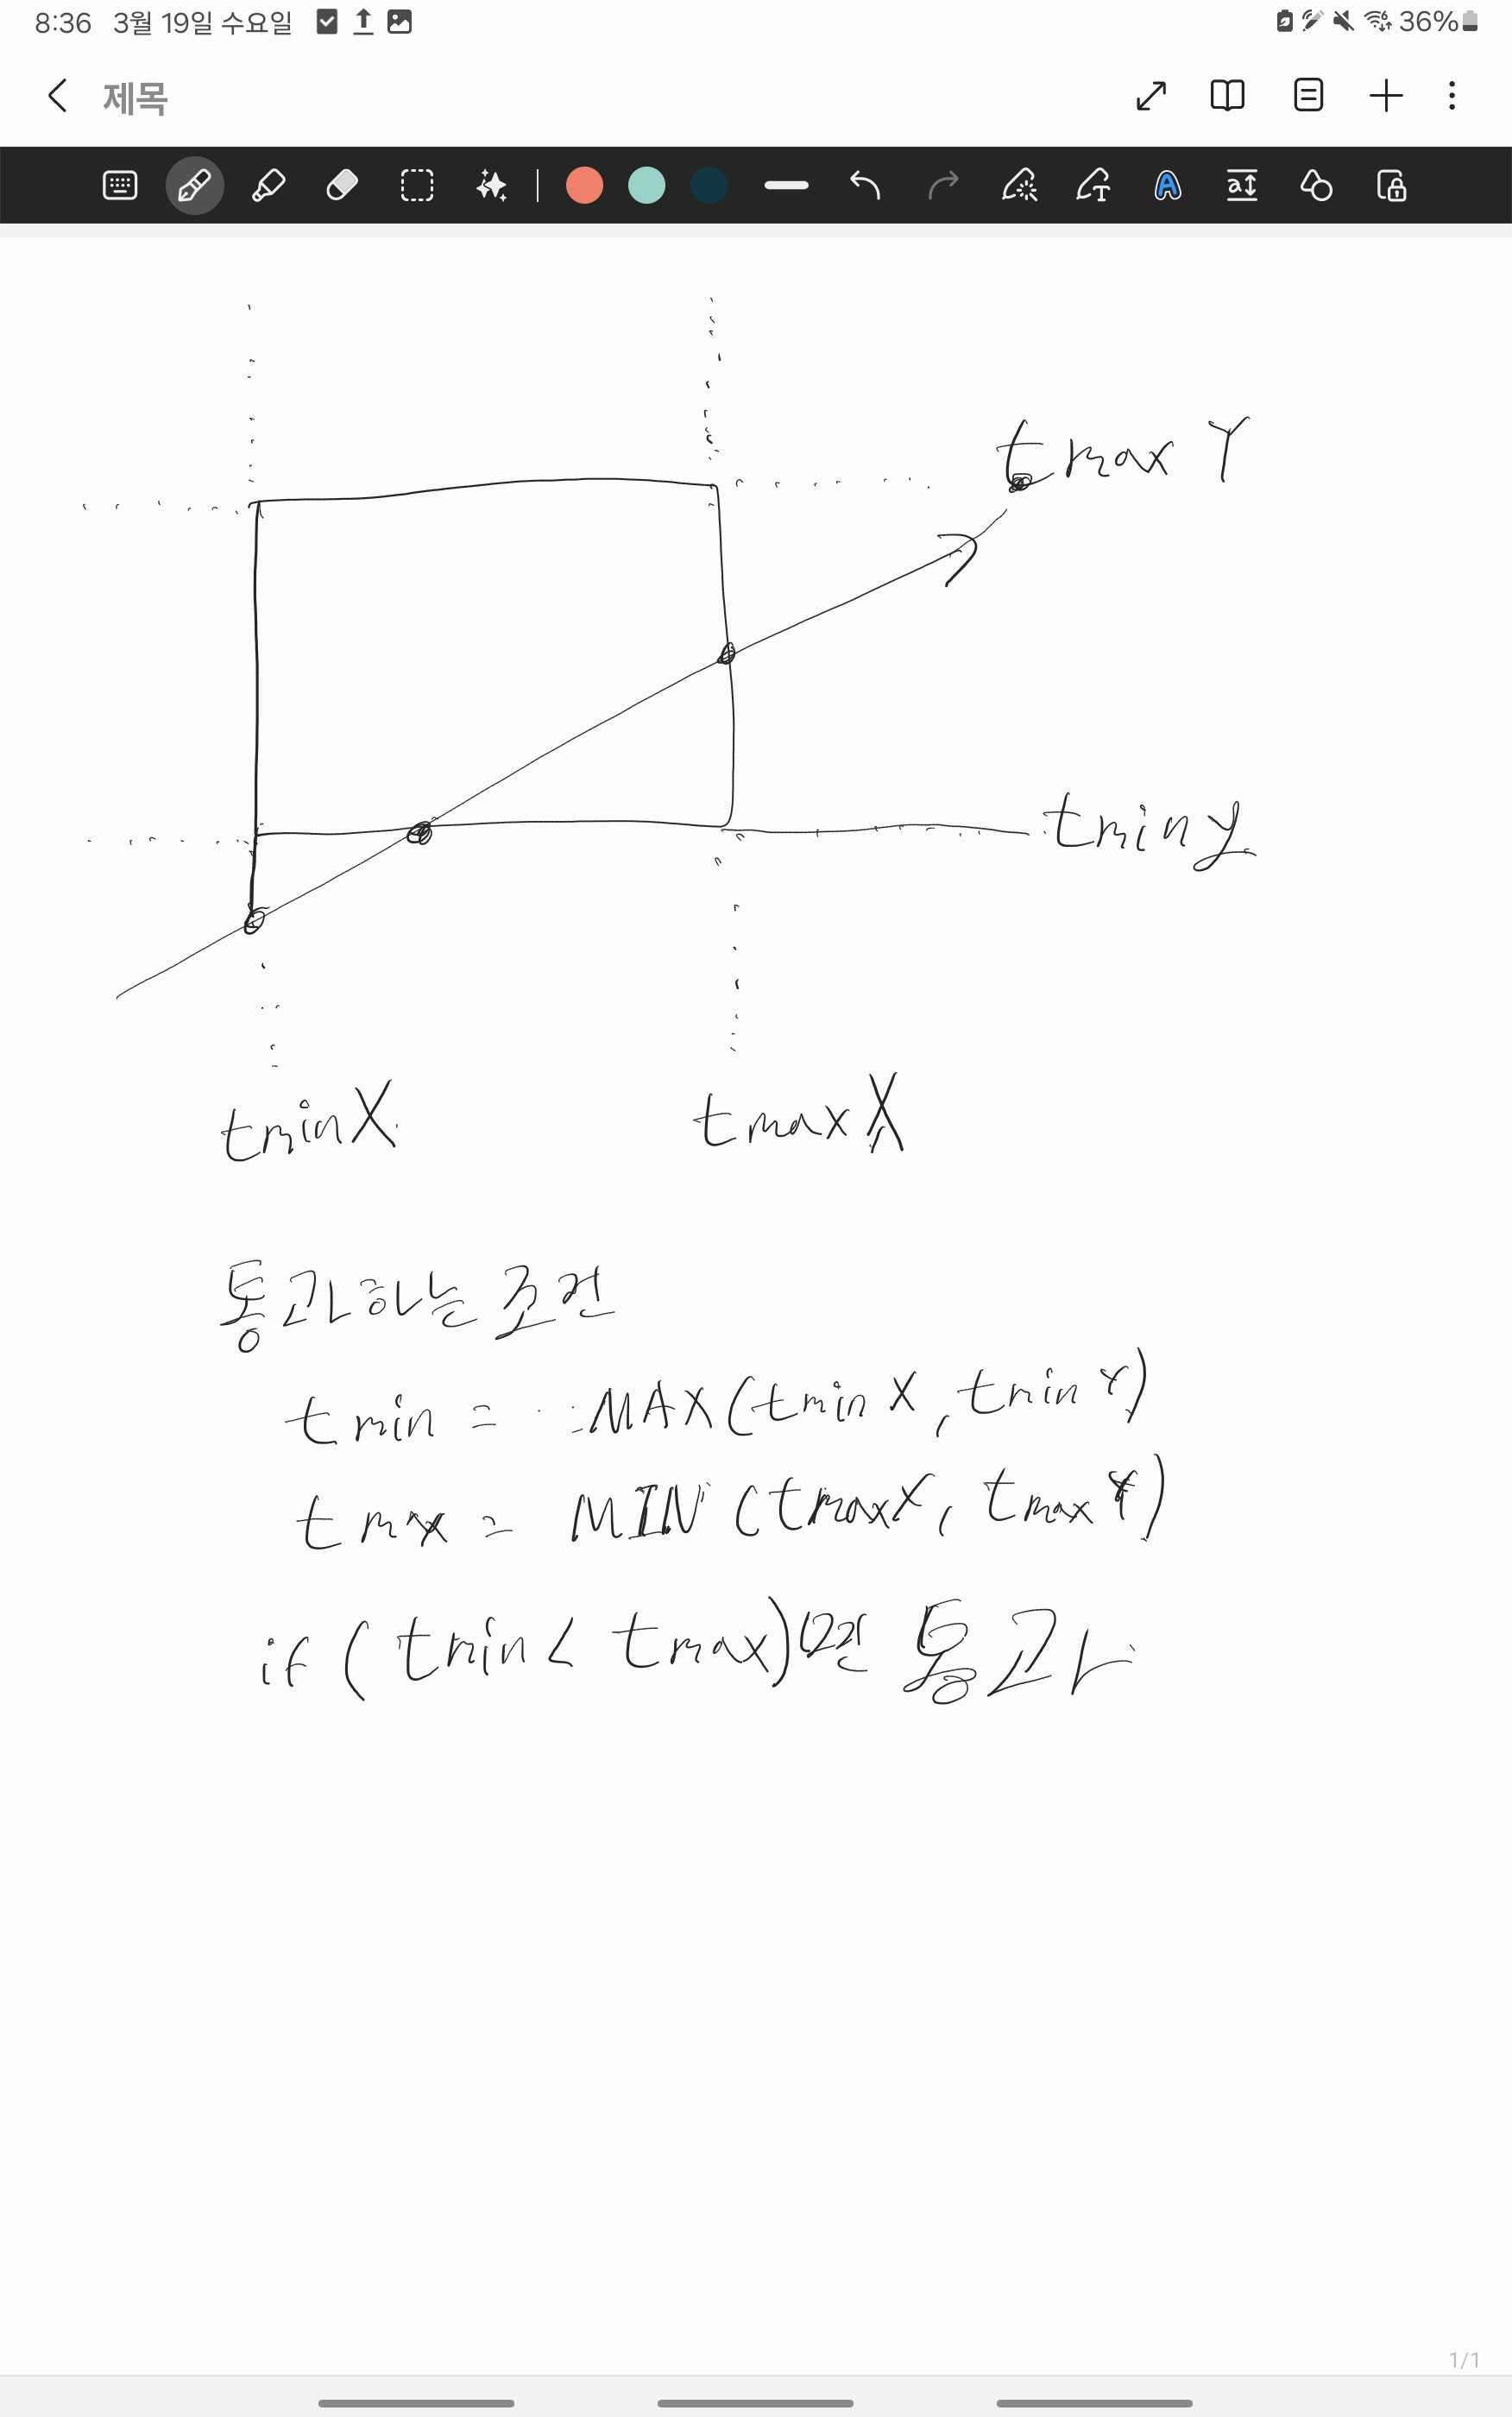 8:36 3월 19일 수요일 36%
제목
A a
T
tmax Y
tmin y
tmin X
tmax X
통과하는 조건
tmin = MAX(tmin X, tmin Y)
tmax = MIN (tmax X, tmax Y)
if ( tmin < tmax)면 통과
1/1